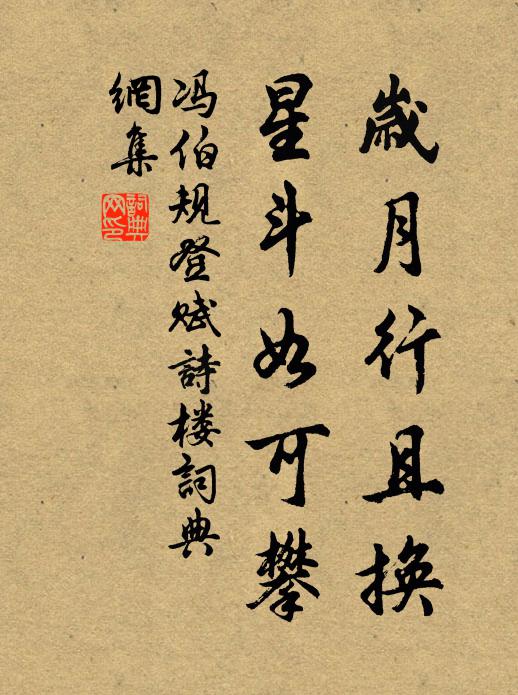 歲月行且換
星斗如可攀
冯伯規登赋詩楼詞典
網集
詞典
网印